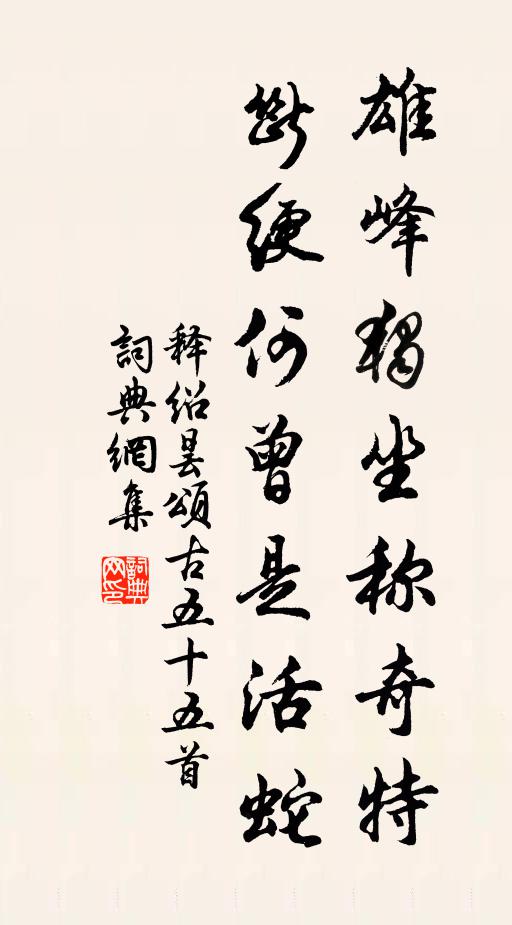 雄峰独坐称奇特
断绠何曾是活蛇
释绍昙颂古五十五首
詞典網集
詞典网印